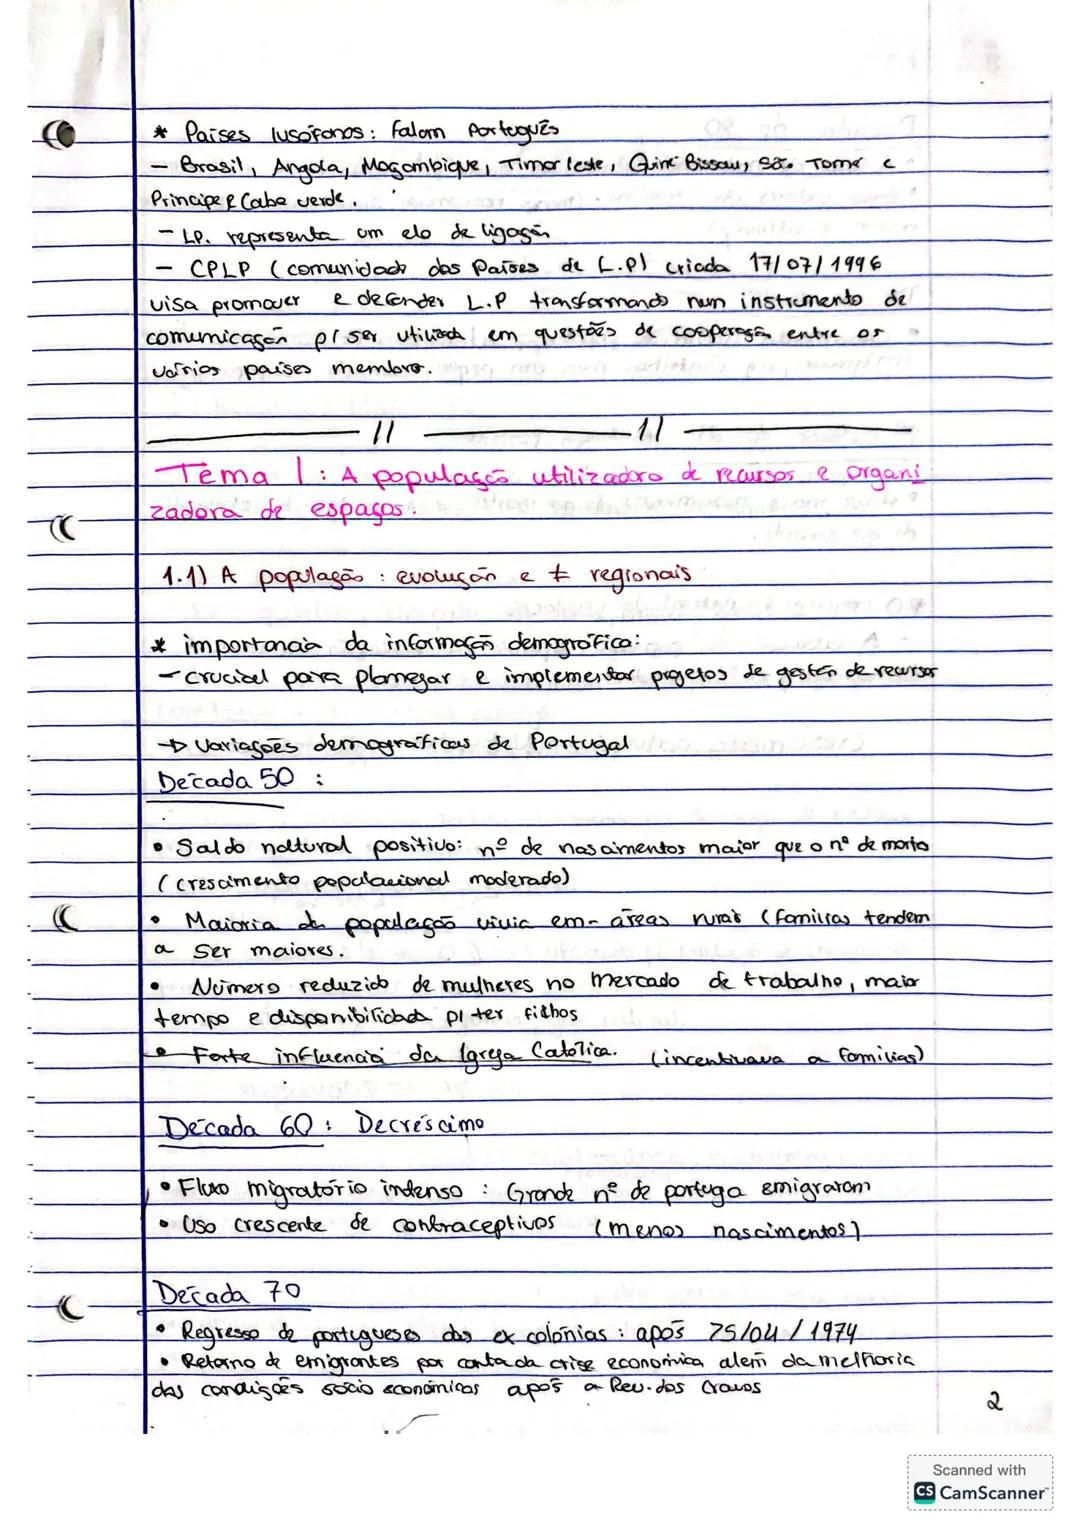 * Países lusófonos: falam Português
- Brasil, Angola, Moçambique, Timor leste, Guiné Bissau, São Tomé e
Principe e Cabo verde.
- LP. representa um elo de ligação
- CPLP (comunidade dos Países de L.P) criada 17/07/1996
visa promover e defender L.P transformando num instrumento de
comunicação p/ ser utilizada em questões de cooperação entre os
vários países membro.
// //
Tema 1: A população utilizadora de recursos e organi
zadora de espaços.
1.1) A população: evolução e ≠ regionais
* importancia da informação demográfica:
- crucial para planejar e implementar projetos de gestão de recursos
→ Variações demográficas de Portugal
Década 50:
• Saldo natural positivo: nº de nascimentos maior que o nº de mortos
(crescimento populacional moderado)
• Maioria da população vivia em áreas rurais (famílias tendem
a ser maiores.
• Número reduzido de mulheres no mercado de trabalho, maior
tempo e disponibilidade p/ ter filhos
• Forte influencia da Igreja Católica. (incentivava a famílias)
Década 60: Decréscimo
• Fluxo migratório intenso: Grande nº de portuga emigraram
• Uso crescente de contraceptivos (menos nascimentos)
Década 70
• Regresso de portugueses das ex colónias: após 25/04/1974
• Retorno de emigrantes por conta da crise económica além da melhoria
das condições socio económicas após a Rev. dos Cravos
2
Scanned with
CS CamScanner